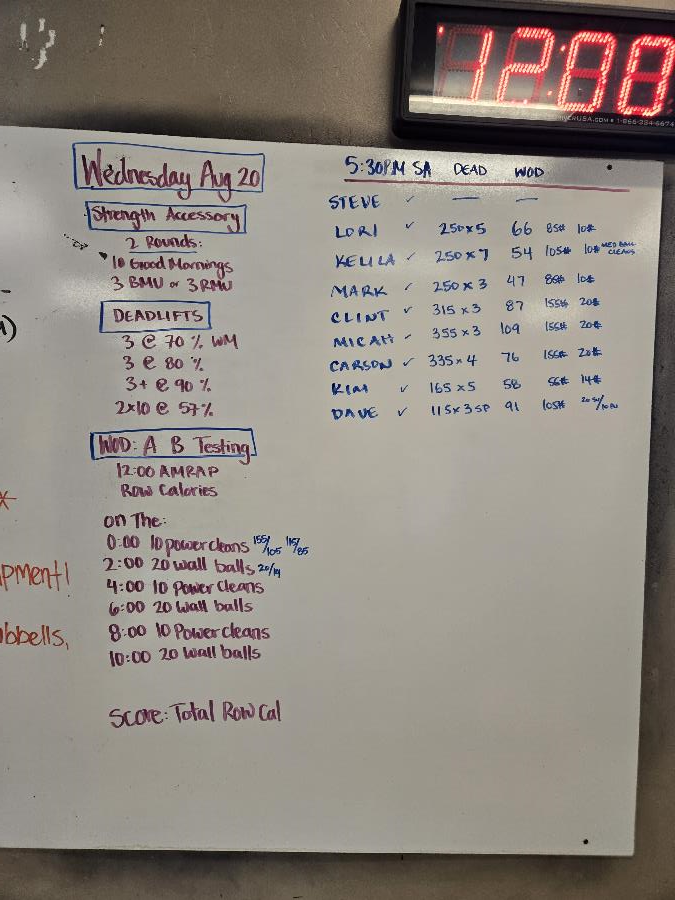 12:00
Wednesday Aug 20
Strength Accessory
2 Rounds:
10 Good Mornings
3 BMU or 3 RMU
DEADLIFTS
3 @ 70 % WM
3 @ 80 %
3+ @ 90 %
2x10 @ 57%
WOD: A B Testing
12:00 AMRAP
Row Calories
on The:
0:00 10 powercleans 155/105 115/85
2:00 20 wall balls 20/14
4:00 10 Power cleans
6:00 20 Wall balls
8:00 10 Powercleans
10:00 20 Wall balls
Score: Total Row Cal
5:30PM SA DEAD WOD
STEVE ✓ — —
LORI ✓ 250x5 66 85# 10#
KELILA ✓ 250x7 54 105# 10# MED BALL CLEANS
MARK ✓ 250x3 47 85# 10#
CLINT ✓ 315x3 87 155# 20#
MICAH ✓ 355x3 109 155# 20#
CARSON ✓ 335x4 76 155# 20#
KIM ✓ 165x5 58 55# 14#
DAVE ✓ 115x3SP 91 105#
pment!
bbells,